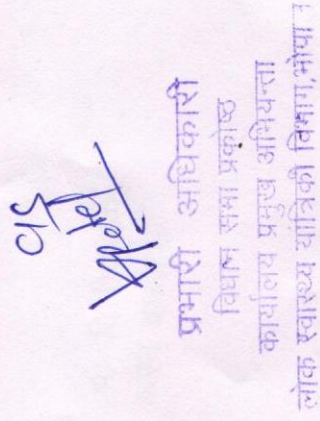 प्रभारी अधिकारी
विधान सभा प्रकोष्ठ
कार्यालय प्रमुख अभियन्ता
लोक स्वास्थ्य यांत्रिकी विभाग, भोपाल ।